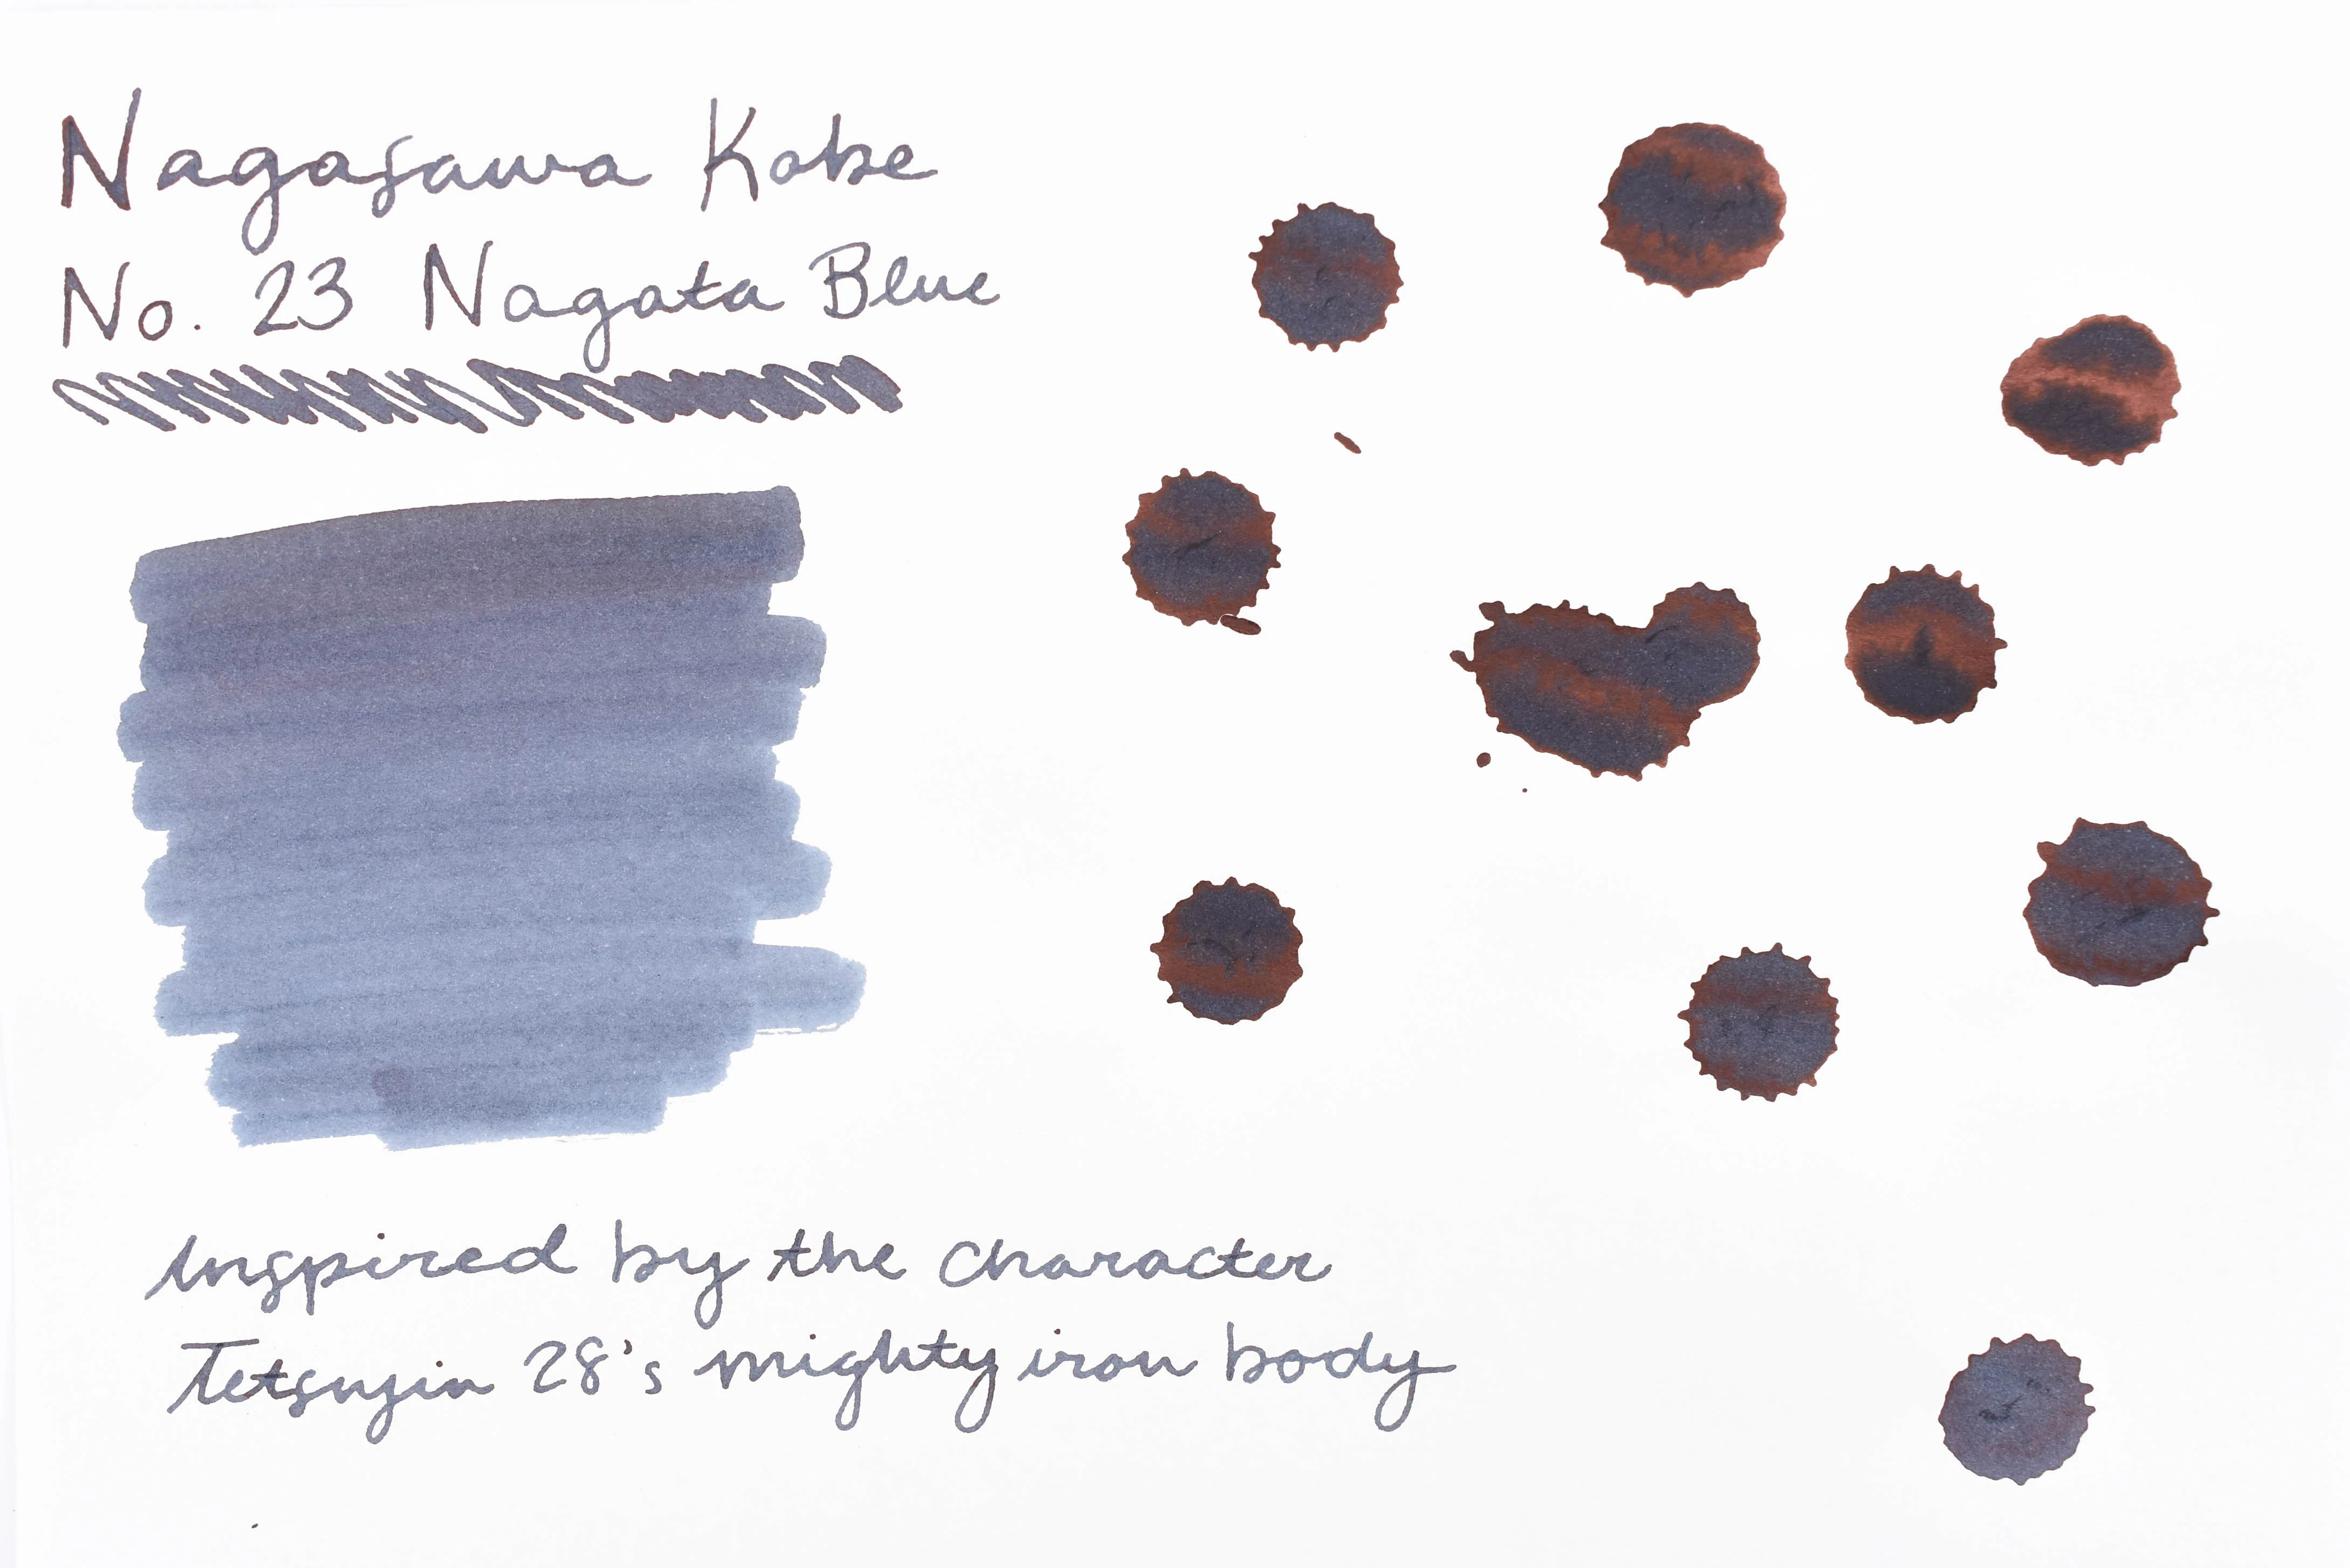 Nagasawa Kobe
No. 23 Nagata Blue
Inspired by the character
Tetsujin 28's mighty iron body